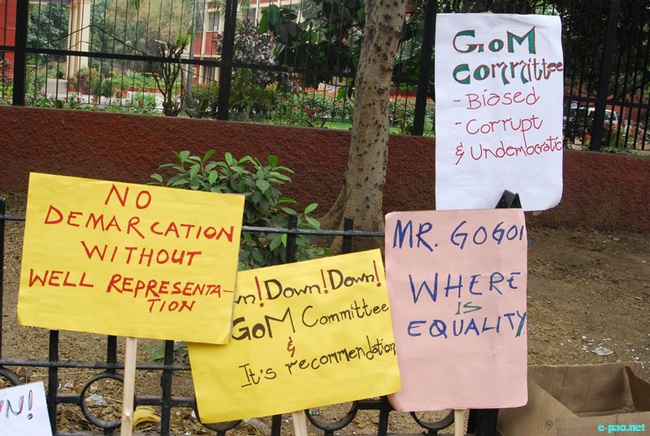 GoM
Committee
- Biased
- Corrupt
& Undembocratic
NO
DEMARCATION
WITHOUT
WELL REPRESENTA-
TION
wn! Down! Down!
GoM Committee
&
It's recommendation
MR. GOGOI
WHERE
IS
EQUALITY
N!
e-pao.net